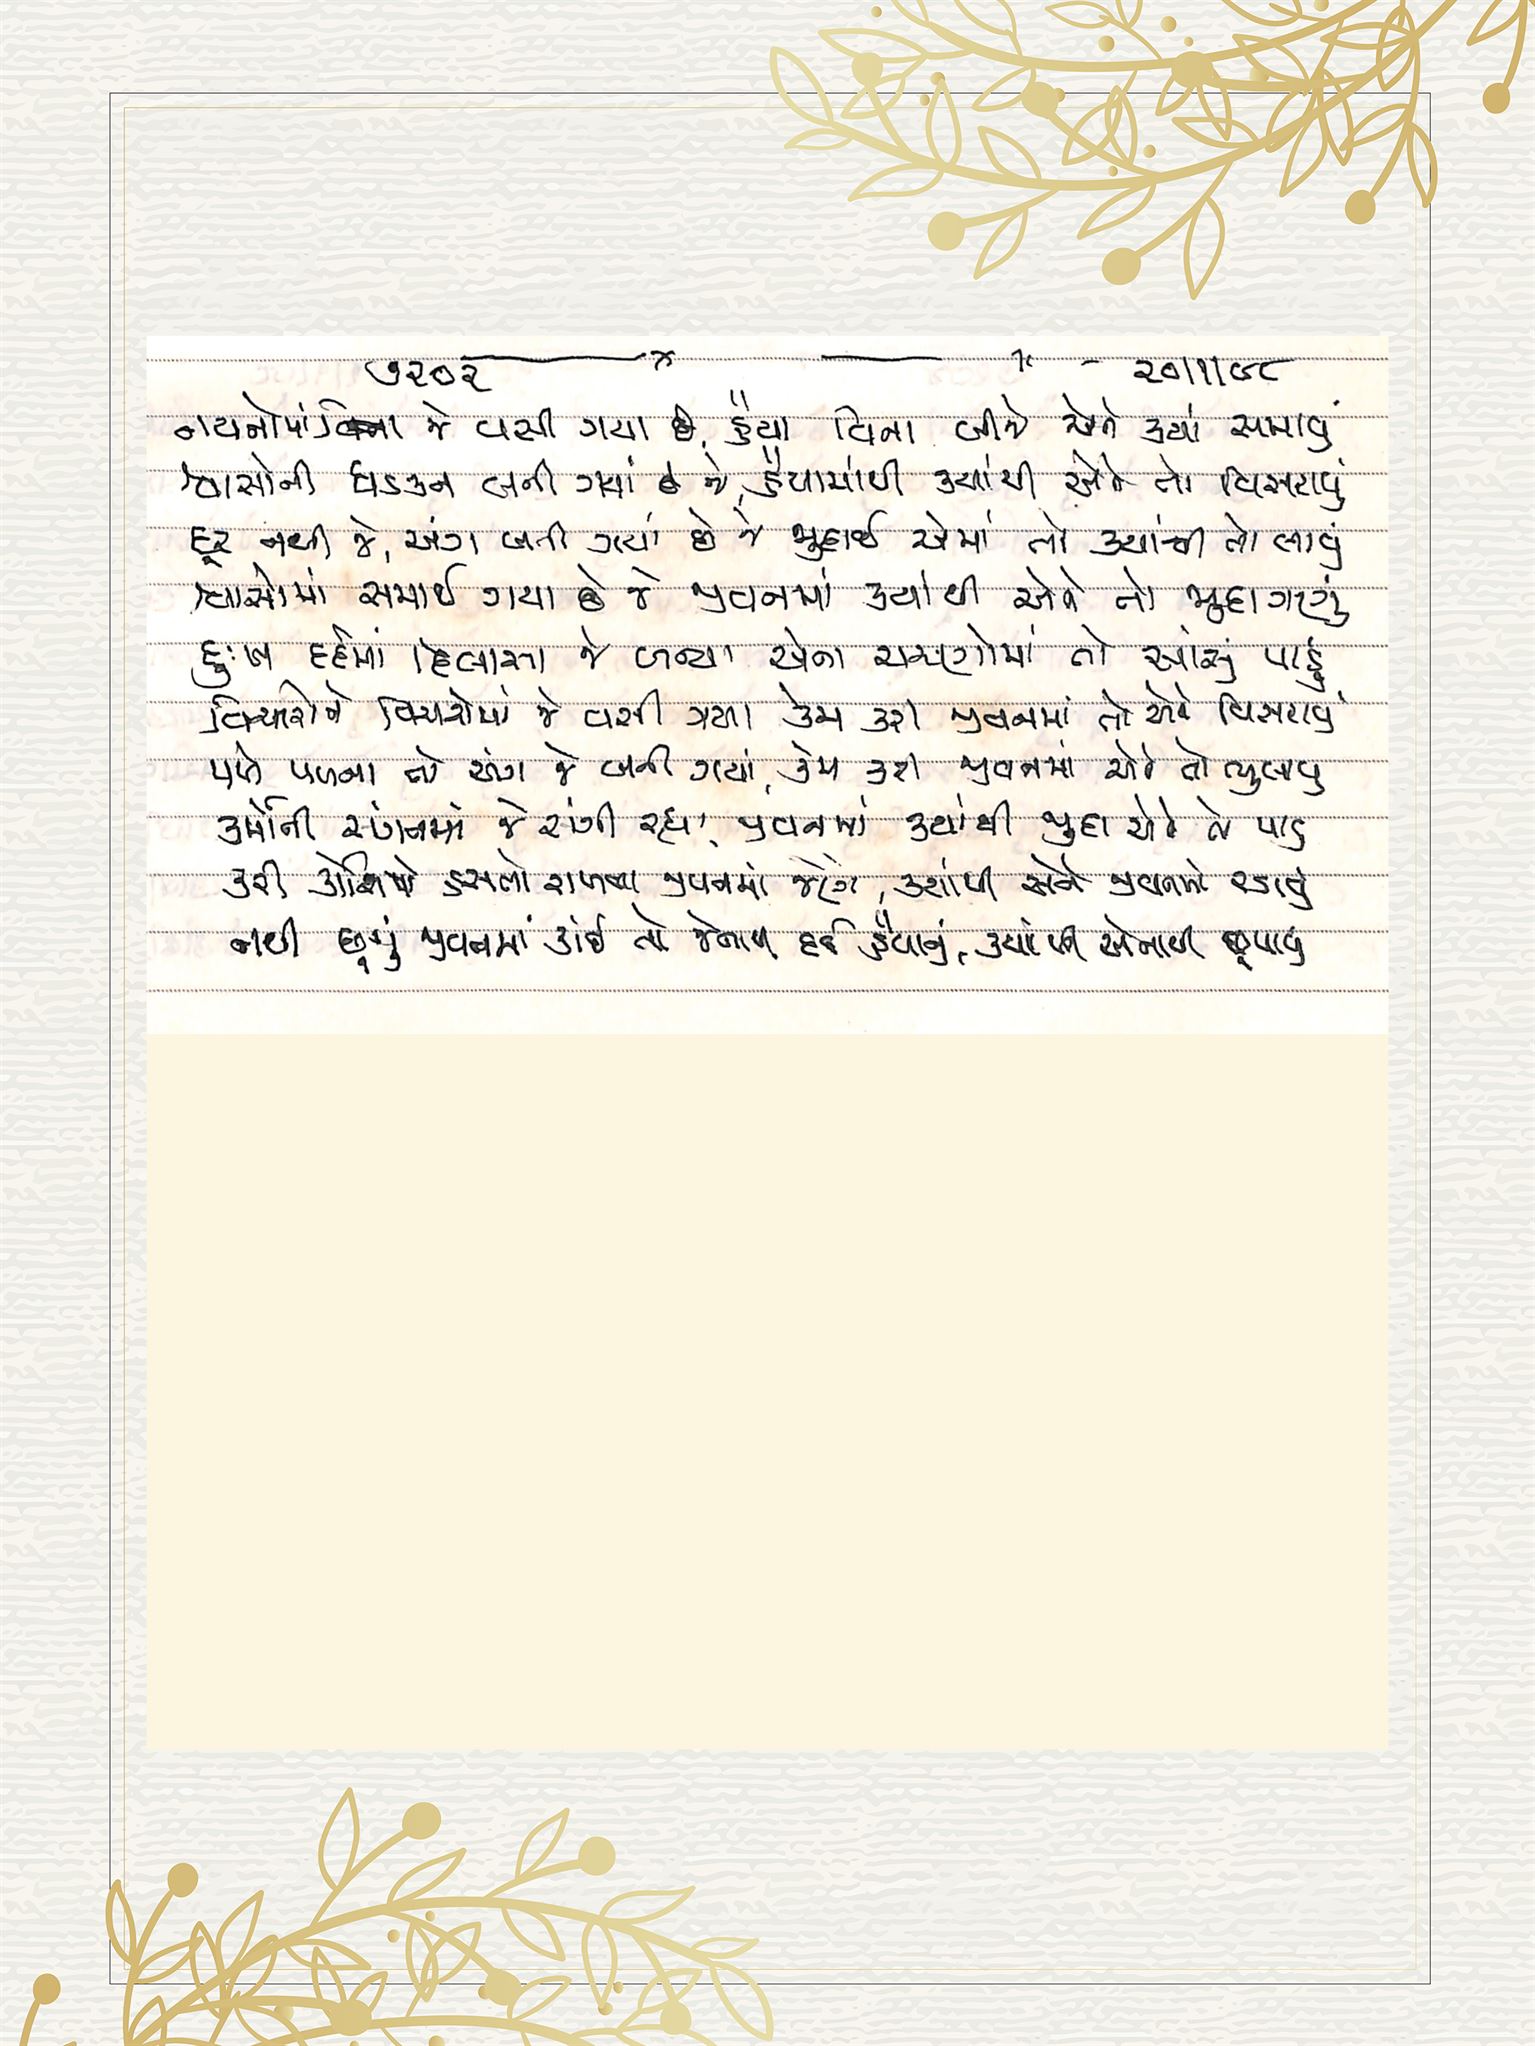 ૭૨૦૨ ૨૦/૧/૯૮
નયનોમાં જે વસી ગયા છે, હૈયા વિના બીજે એને ક્યાં સમાવું
શ્વાસોની ધડકન બની ગયાં છે જે, હૈયામાંથી ક્યાંથી એને તો વિસરાવું
દૂર નથી જે, અંગ બની ગયાં છે જે જુદાઈ એમાં તો ક્યાંથી તો લાવું
શ્વાસોમાં સમાઈ ગયા છે જે જીવનમાં ક્યાંથી એને તો જુદા ગણું
દુઃખ દર્દમાં દિલાસા જે બન્યા એના ચરણોમાં તો આંસું પાડું
વિચારોને વિચારોમાં જે વસી ગયા કેમ કરી જીવનમાં તો એને વિસરાવું
પળે પળના તો અંગ જે બની ગયાં, કેમ કરી જીવનમાં એને તો ભુલાવુ
કર્મોની રંગતમાં જે રંગી રહ્યાં જીવનમાં ક્યાંથી જુદા એને તો પાડુ
કરી કોશિષો હસતો રાખવા જીવનમાં જેણે, ક્યાંથી એને જીવનમાં રડાવું
નથી છૂપું જીવનમાં કાંઈ તો જેનાથી દર્દ હૈયાનું, ક્યાંથી એનાથી છૂપાવુ